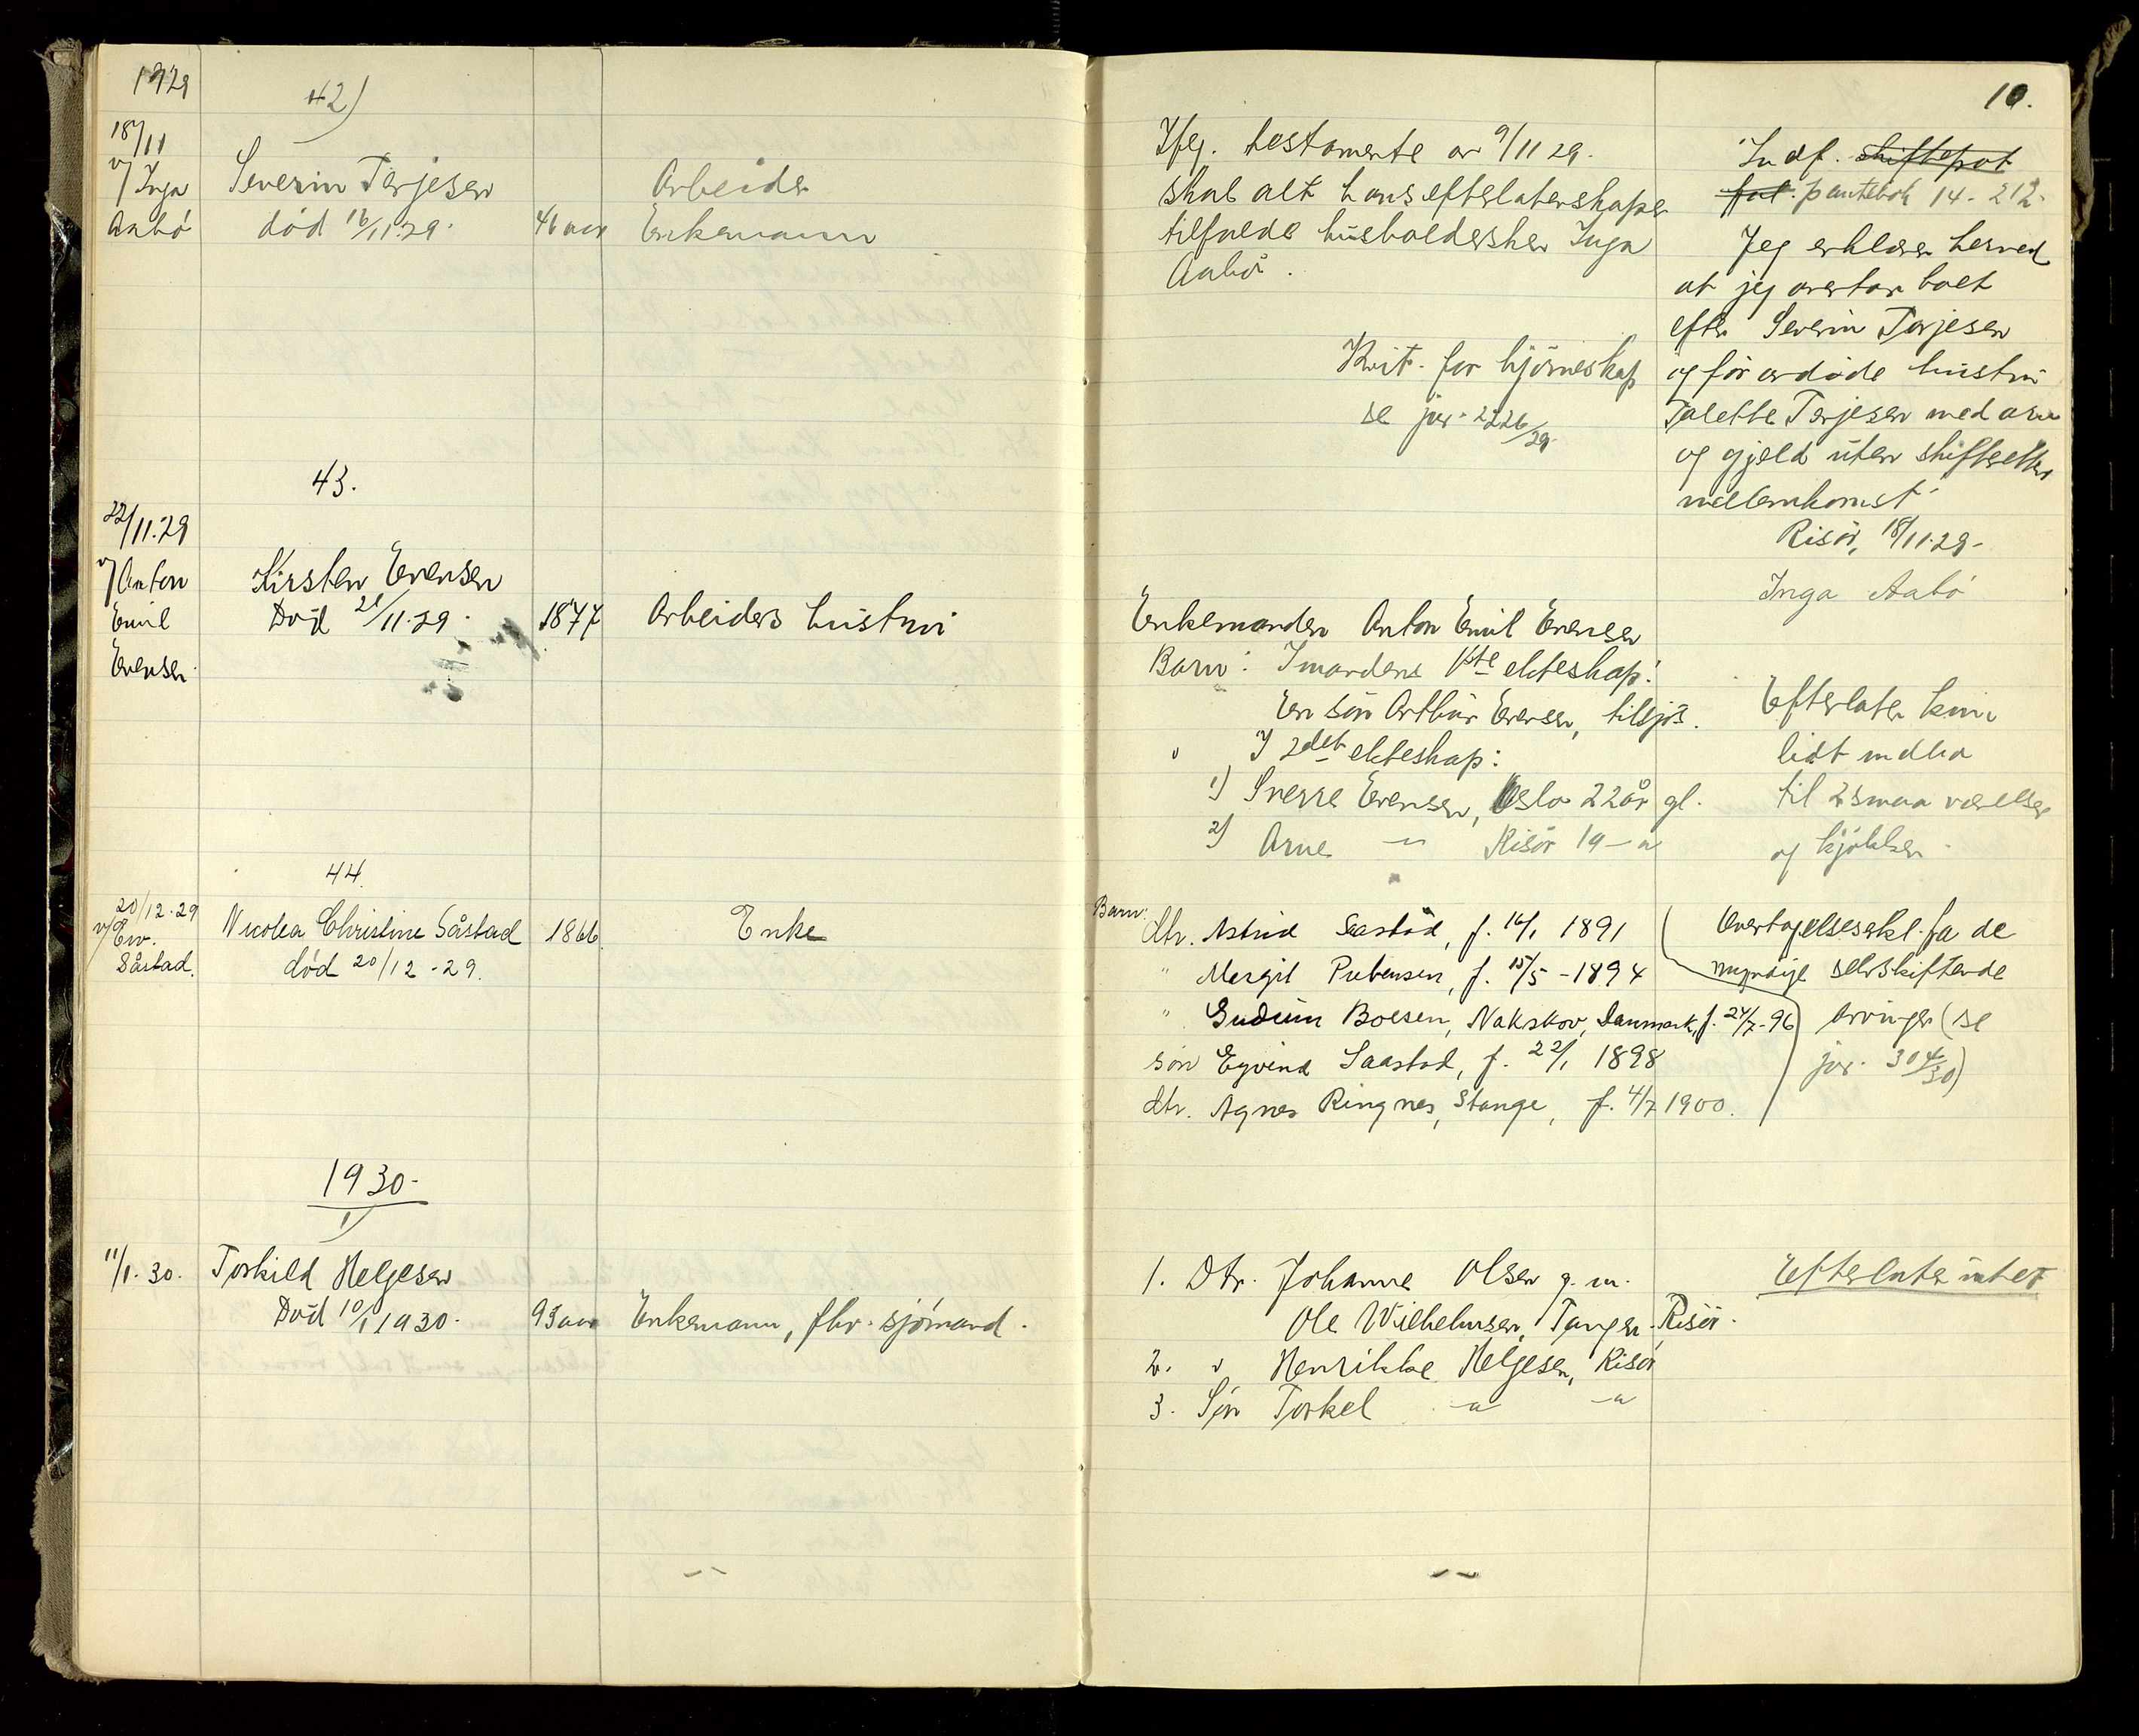 1929
10.
42)
18/11
v/ Inga
Aabö
Severin Terjesen
död 16/11 29.
46 aar
Arbeider
Enkemann
Ifлg. testamente av 9/11 29.
skal alt hans efterlatenskaper
tilfalde husholdersken Inga
Aabö.
Kvit. for hjörneskap
se jur. 2226/29
Indf. skifteprot
fol. pantebok 14-212-
Jeg erklærer herved
at jeg overtar boet
efter Severin Terjesen
og för avdöde hustru
Talette Terjesen med arv
og gjeld uten skifterettens
mellemkomst.
Risör, 18/11 29-
Inga Aabö
43.
22/11.29
v/ Anton
Emil
Evensen
Kirsten Evensen
Död 21/11.29.
1877
Arbeiders hustru
Enkemanden Anton Emil Evensen
Barn: I mandens 1ste ekteskap:
En sön Arthur Evensen, tilsjös.
" I 2det ekteskap:
1) Sverre Evensen, Oslo 22 år gl.
2) Arne -"- Risör 19 -"-
Efterlater kun
lidt indbo
til 2 smaa værelser
og kjökken.
44.
20/12.29
v/ Eiv.
Såstad.
Nicolea Christine Såstad
död 20/12-29.
1866.
Enke
Barn:
dtr. Astrid Saastad, f. 16/1 1891
" Margit Prebensen, f. 15/5-1894
" Gudrun Boesen, Nakskov, Danmark, f. 24/7-96
sön Eyvind Saastad, f. 22/1 1898
dtr. Agnes Ringnes, Stange, f. 4/7 1900.
Overtagelseserkl. fra de
myndige selvskiftende
arvinger (se
jur. 304/30)
1930.
1)
11/1.30.
Torkild Helgesen
Död 10/1 1930.
93 aar
Enkemann, fhv. sjömand.
1. Dtr. Johanne Olsen g.m.
Ole Wilhelmsen, Tangen. Risör.
2. " Henrikke Helgesen, Risör
3. Sön Torkel -"- -"-
Efterlater intet